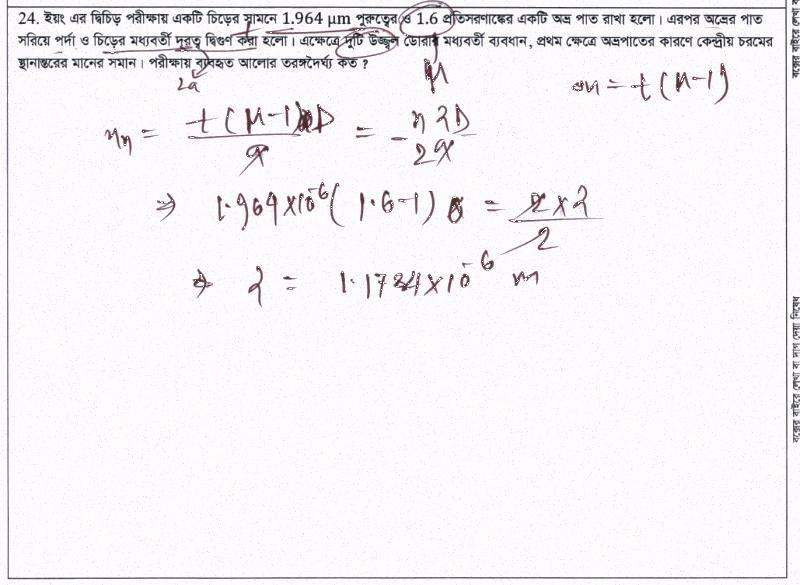 24. ইয়ং এর দ্বিচিড় পরীক্ষায় একটি চিড়ের সামনে 1.964 μm পুরুত্বের ও 1.6 প্রতিসরণাঙ্কের একটি অভ্র পাত রাখা হলো। এরপর অভ্রের পাত
সরিয়ে পর্দা ও চিড়ের মধ্যবর্তী দূরত্ব দ্বিগুণ করা হলো। এক্ষেত্রে দুটি উজ্জ্বল ডোরার মধ্যবর্তী ব্যবধান, প্রথম ক্ষেত্রে অভ্রপাতের কারণে কেন্দ্রীয় চরমের
স্থানান্তরের মানের সমান। পরীক্ষায় ব্যবহৃত আলোর তরঙ্গদৈর্ঘ্য কত ?
t
μ
2a
= t(μ-1)
= t(μ-1)D =
⇒ 1.964×10^-6 (1.6-1) =
⇒ λ = 1.1784×10^-6 m
বক্সের বাইরে লেখা বা দাগ দেয়া নিষেধ